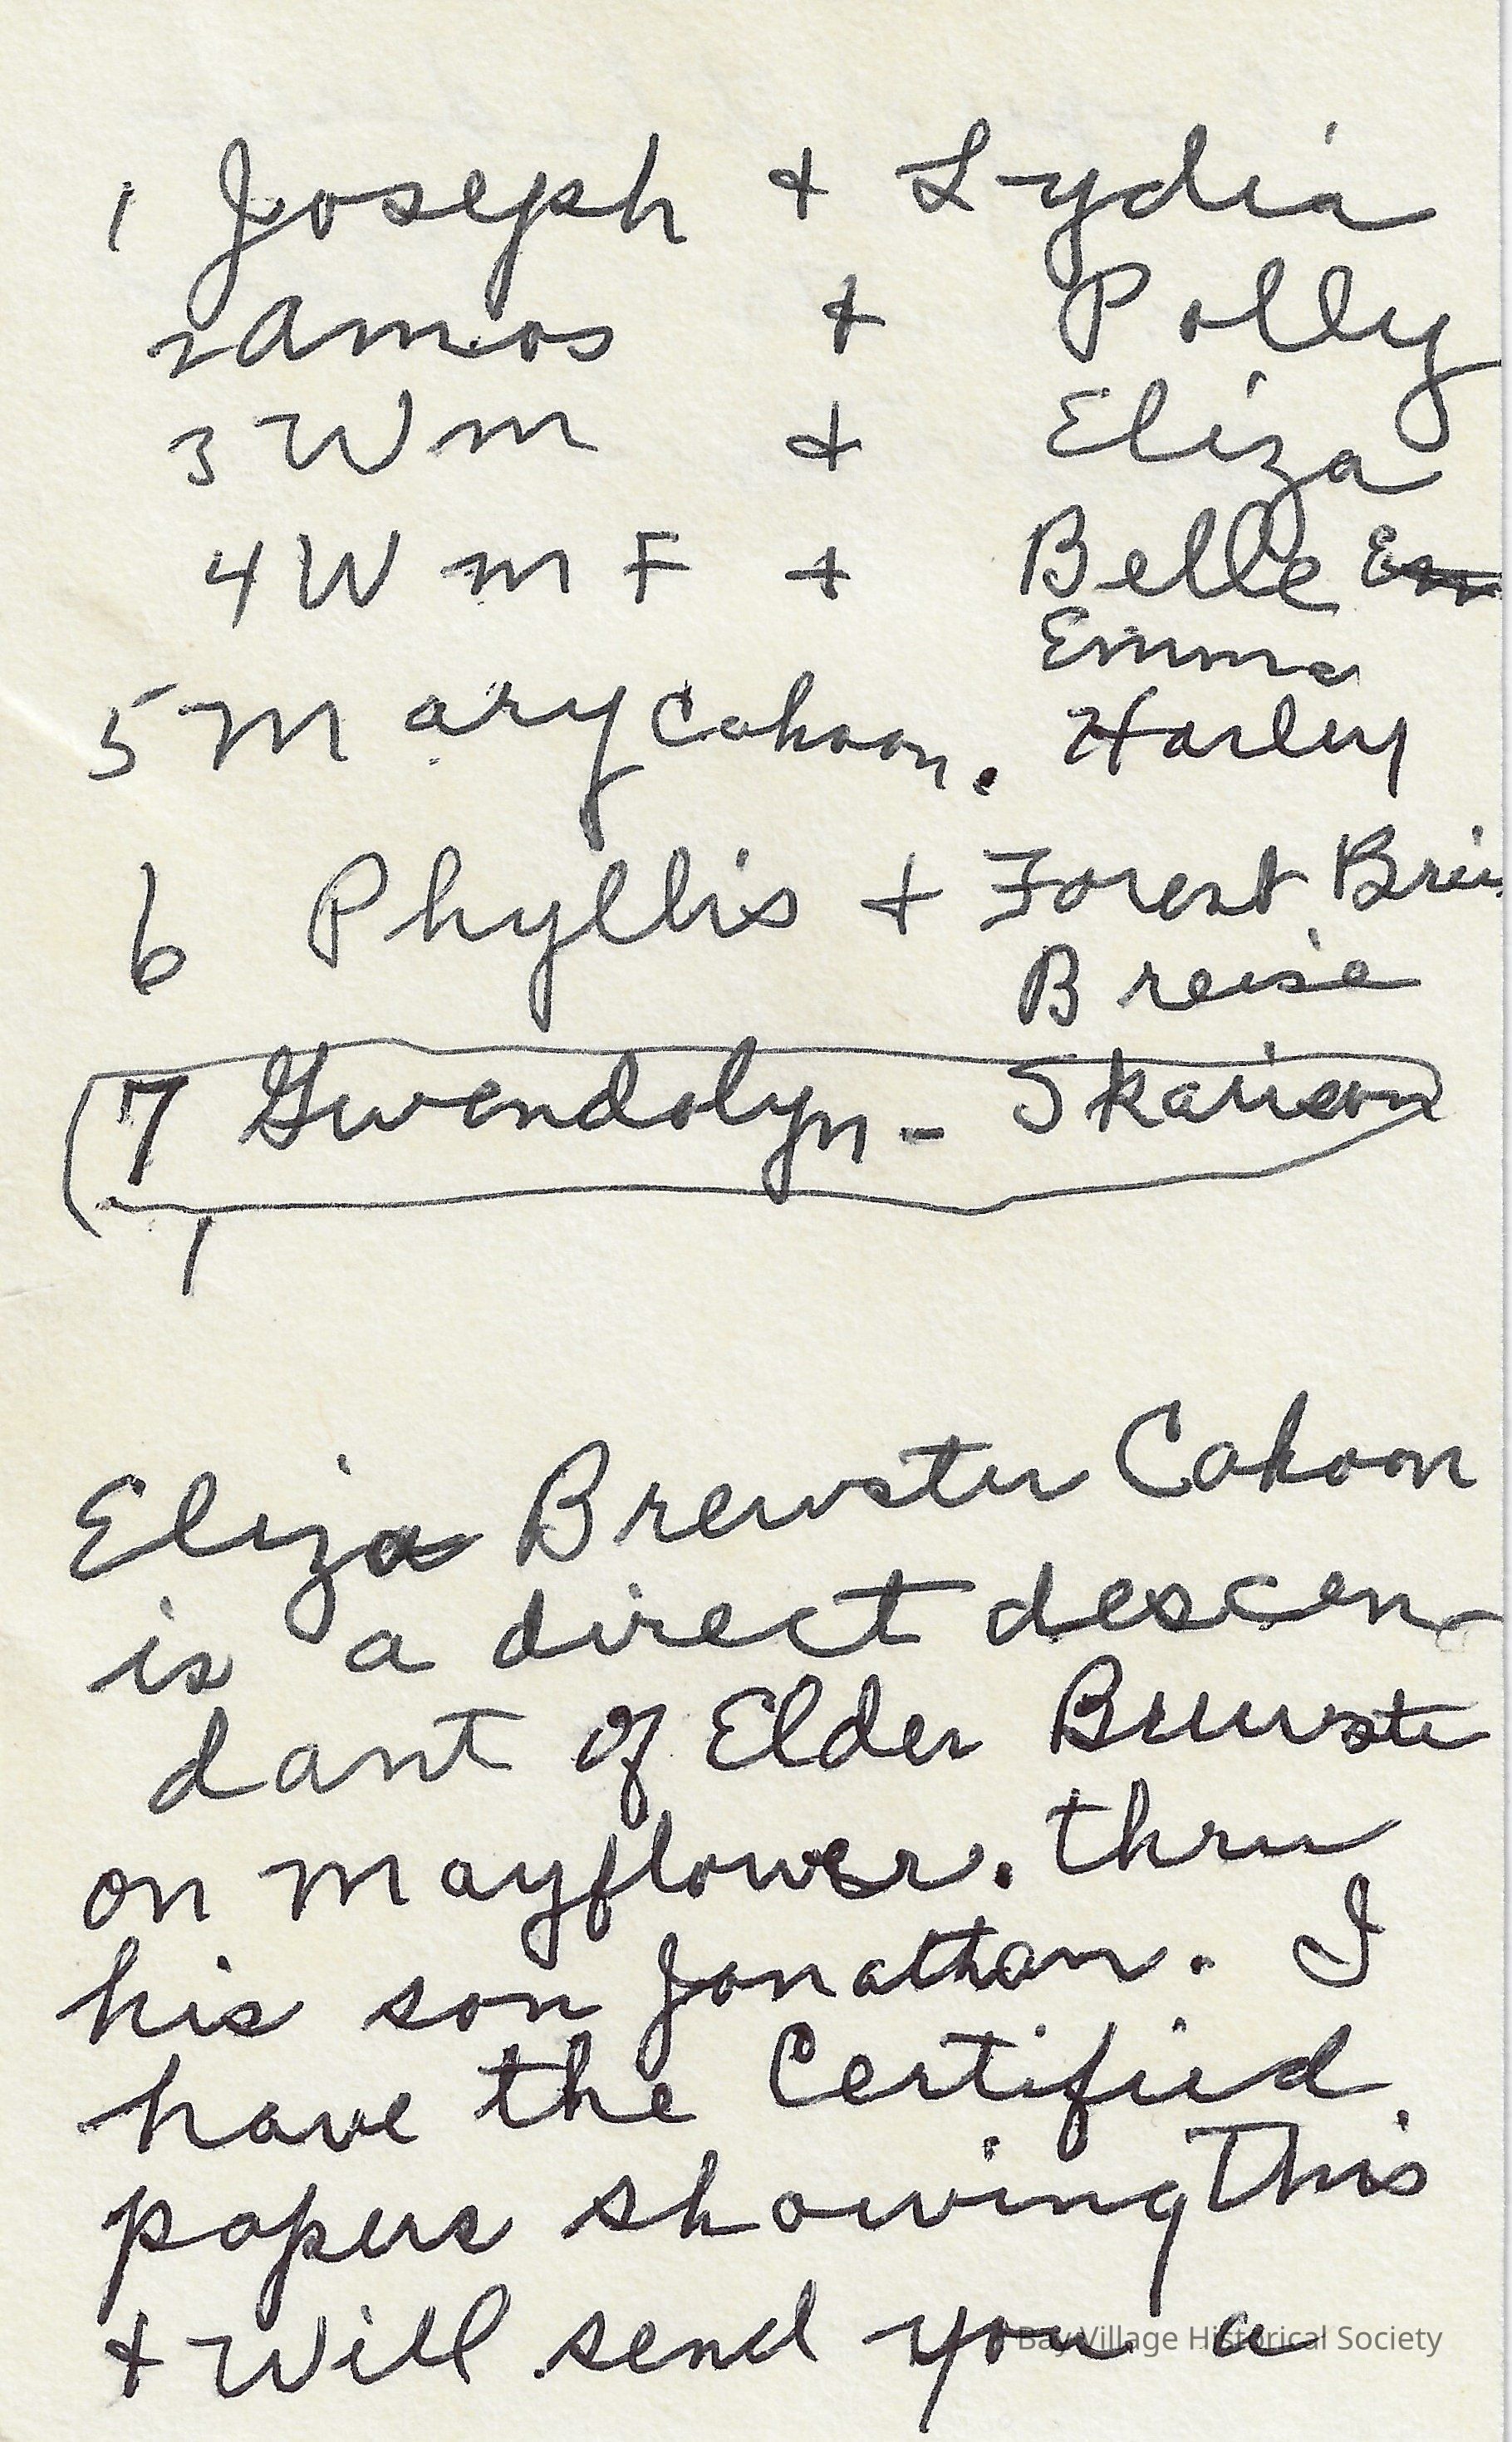 1 Joseph + Lydia
2 Amos + Polly
3 Wm + Eliza
4 Wm F + Belle Em
Emma
5 Mary Cahoon. Harley
6 Phyllis + Forest Brei
Breise
7 Gwendolyn -
Eliza Brewster Cahoon
is a direct descen-
dant of Elder Brewste
on Mayflower. thru
his son Jonathan. I
have the Certified
papers showing This
+ Will send you a
Bay Village Historical Society